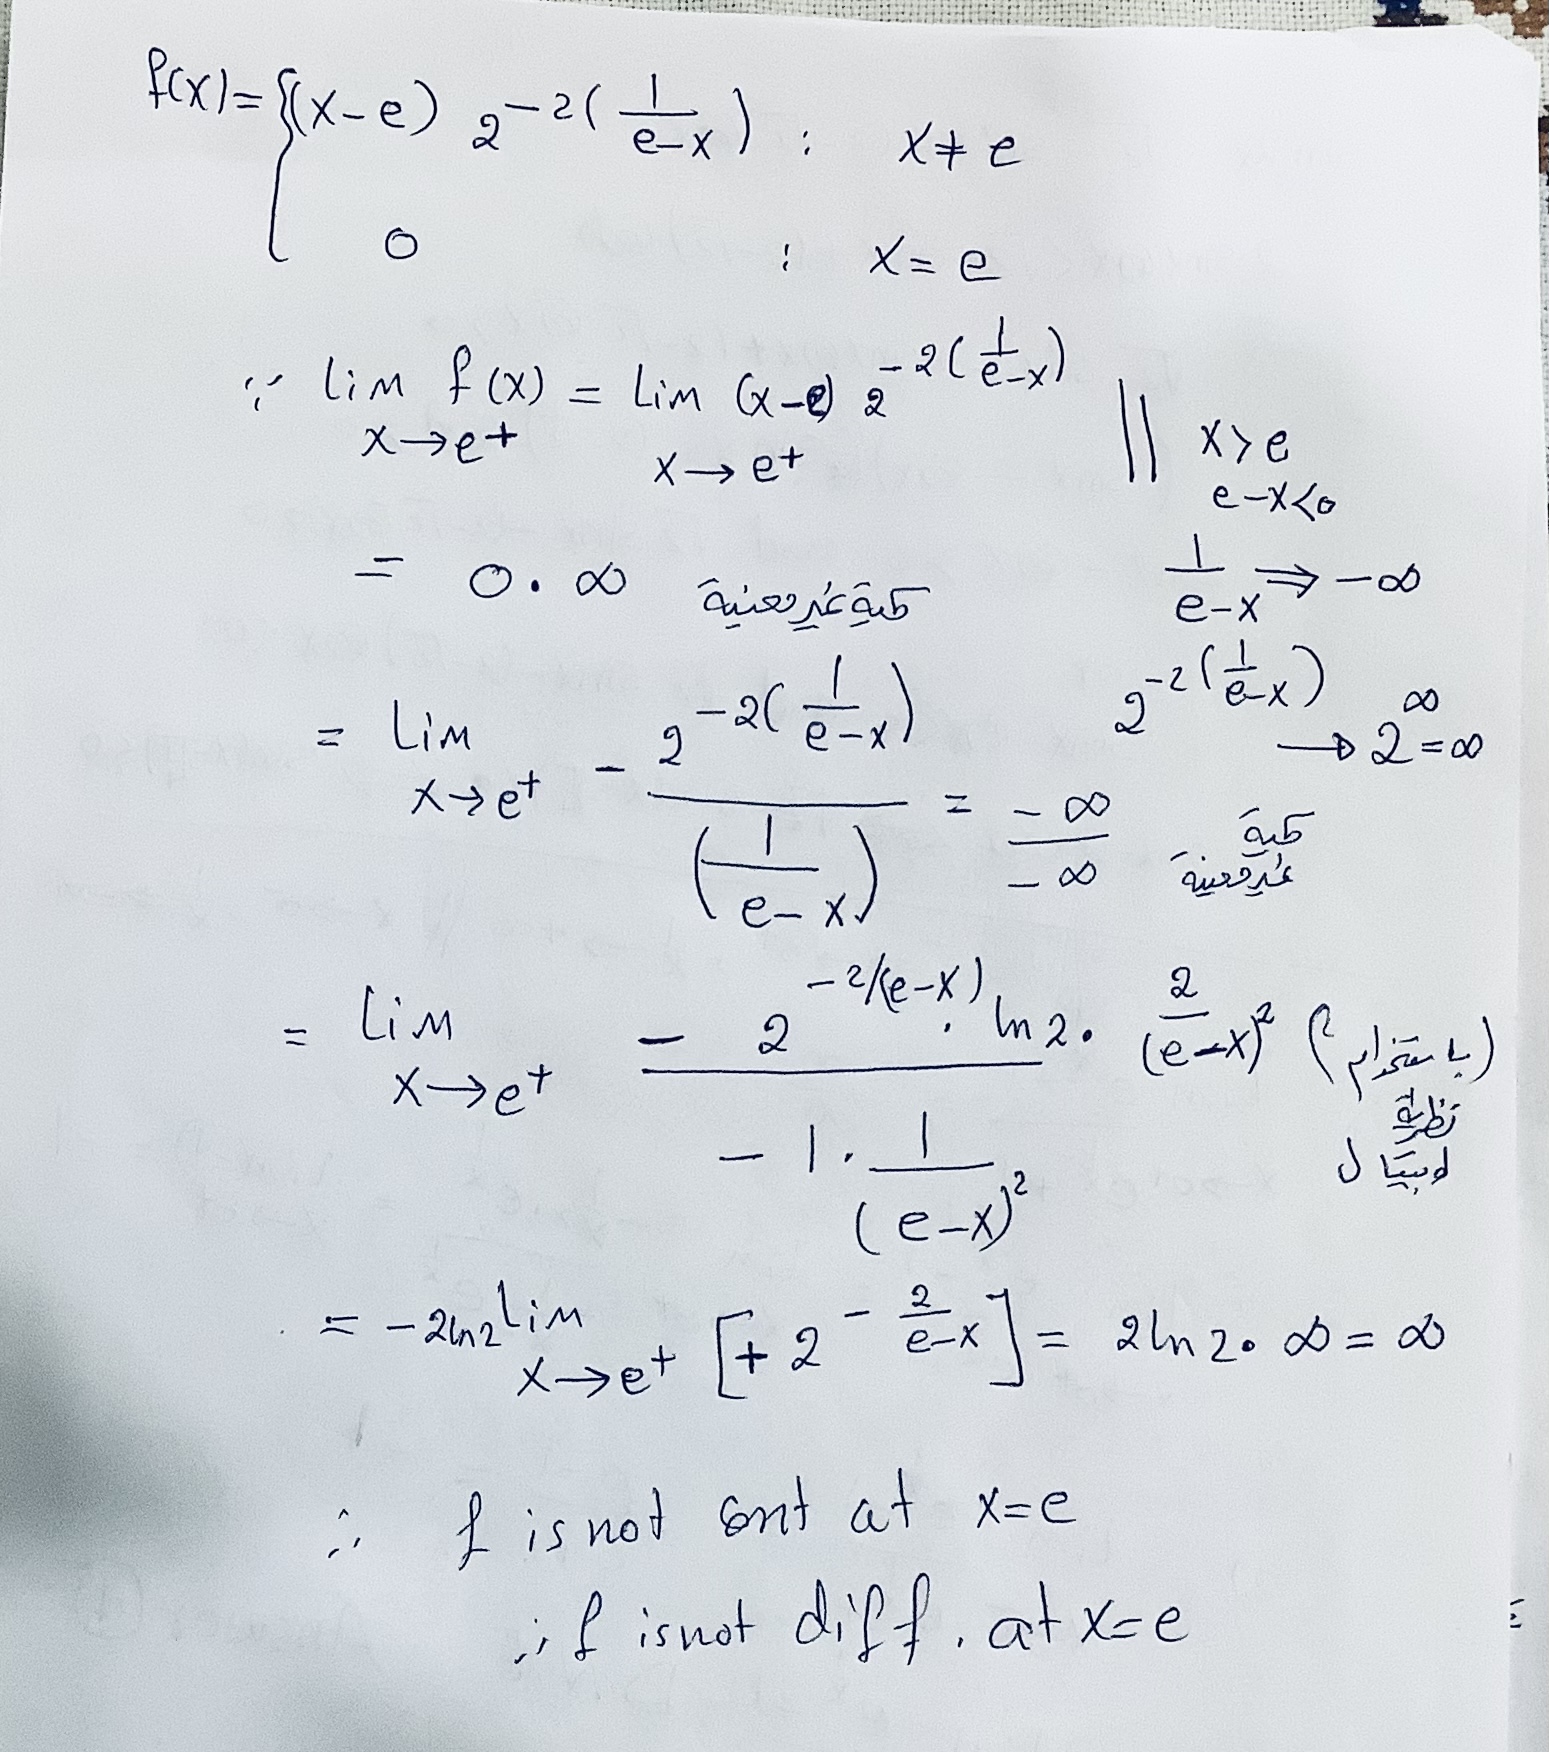 f(x) = { (x-e) 2^{-2(1/(e-x))} : x ≠ e
0 : x = e
∵ lim_{x→e+} f(x) = lim_{x→e+} (x-e) 2^{-2(1/(e-x))} || x > e
e-x < 0
= 0 . ∞ كمية غير معينة
1/(e-x) ⇒ -∞
2^{-2(1/(e-x))} → 2^∞ = ∞
= lim_{x→e+} - 2^{-2(1/(e-x))} / (1/(e-x)) = -∞/-∞ كمية غير معينة
= lim_{x→e+} - 2^{-2/(e-x)} . ln 2 . 2/(e-x)^2 / -1 . 1/(e-x)^2 (باستخدام نظرية لوبيتال)
= -2ln2 lim_{x→e+} [+ 2^{-2/(e-x)}] = 2 ln 2 . ∞ = ∞
∴ f is not cont at x = e
∴ f is not diff. at x = e